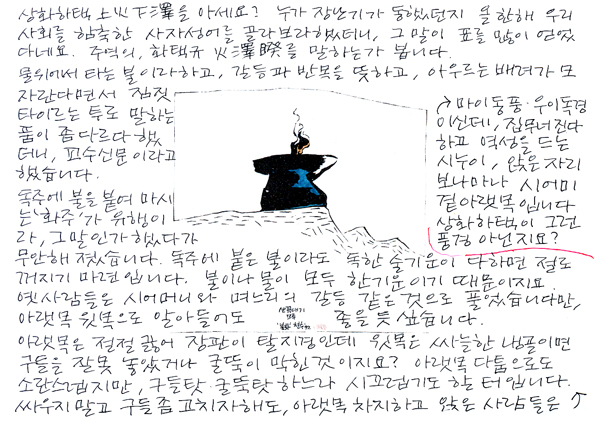 상화하택上火下澤을 아세요? 누가 장난기가 동했던지 올 한해 우리
사회를 함축한 사자성어를 골라보라했더니, 그 말이 표를 많이 얻었
다네요. 주역의, 화택규 火澤睽를 말하는가 봅니다.
물위에서 타는 불이라하고, 갈등과 반목을 뜻하고, 아우르는 배려가 모
자란다면서 짐짓
타이르는 투로 말하는
품이 좀 다르다 했
더니, 교수신문이라고
했습니다.
독주에 불을 붙여 마시
는 '화주'가 유행이
라, 그말인가 했다가
무안해 졌습니다. 독주에 붙은 불이라도 독한 술기운이 다하면 절로
꺼지기 마련입니다. 불이나 물이 모두 한기운이기 때문이지요.
옛사람들은 시어머니와 며느리의 갈등 같은 것으로 풀었습니다만,
아랫목 윗목으로 알아들어도 좋을듯 싶습니다.
아랫목은 절절 끓어 장판이 탈지경인데 윗목은 싸늘한 냉골이면
구들을 잘못 놓았거나 굴뚝이 막힌 것이지요? 아랫목 다툼으로도
소란스럽지만, 구들탓·굴뚝탓 하느라 시끄럽기도 한 터입니다.
싸우지말고 구들 좀 고치자해도, 아랫목 차지하고 앉은 사람들은 ↗
↗마이동풍·우이독경
이신데, 집무너진다
하고 역성을 드는
시누이, 앉은 자리
보나마나 시어미
곁 아랫목입니다
상화하택이 그런
풍경 아닌지요?